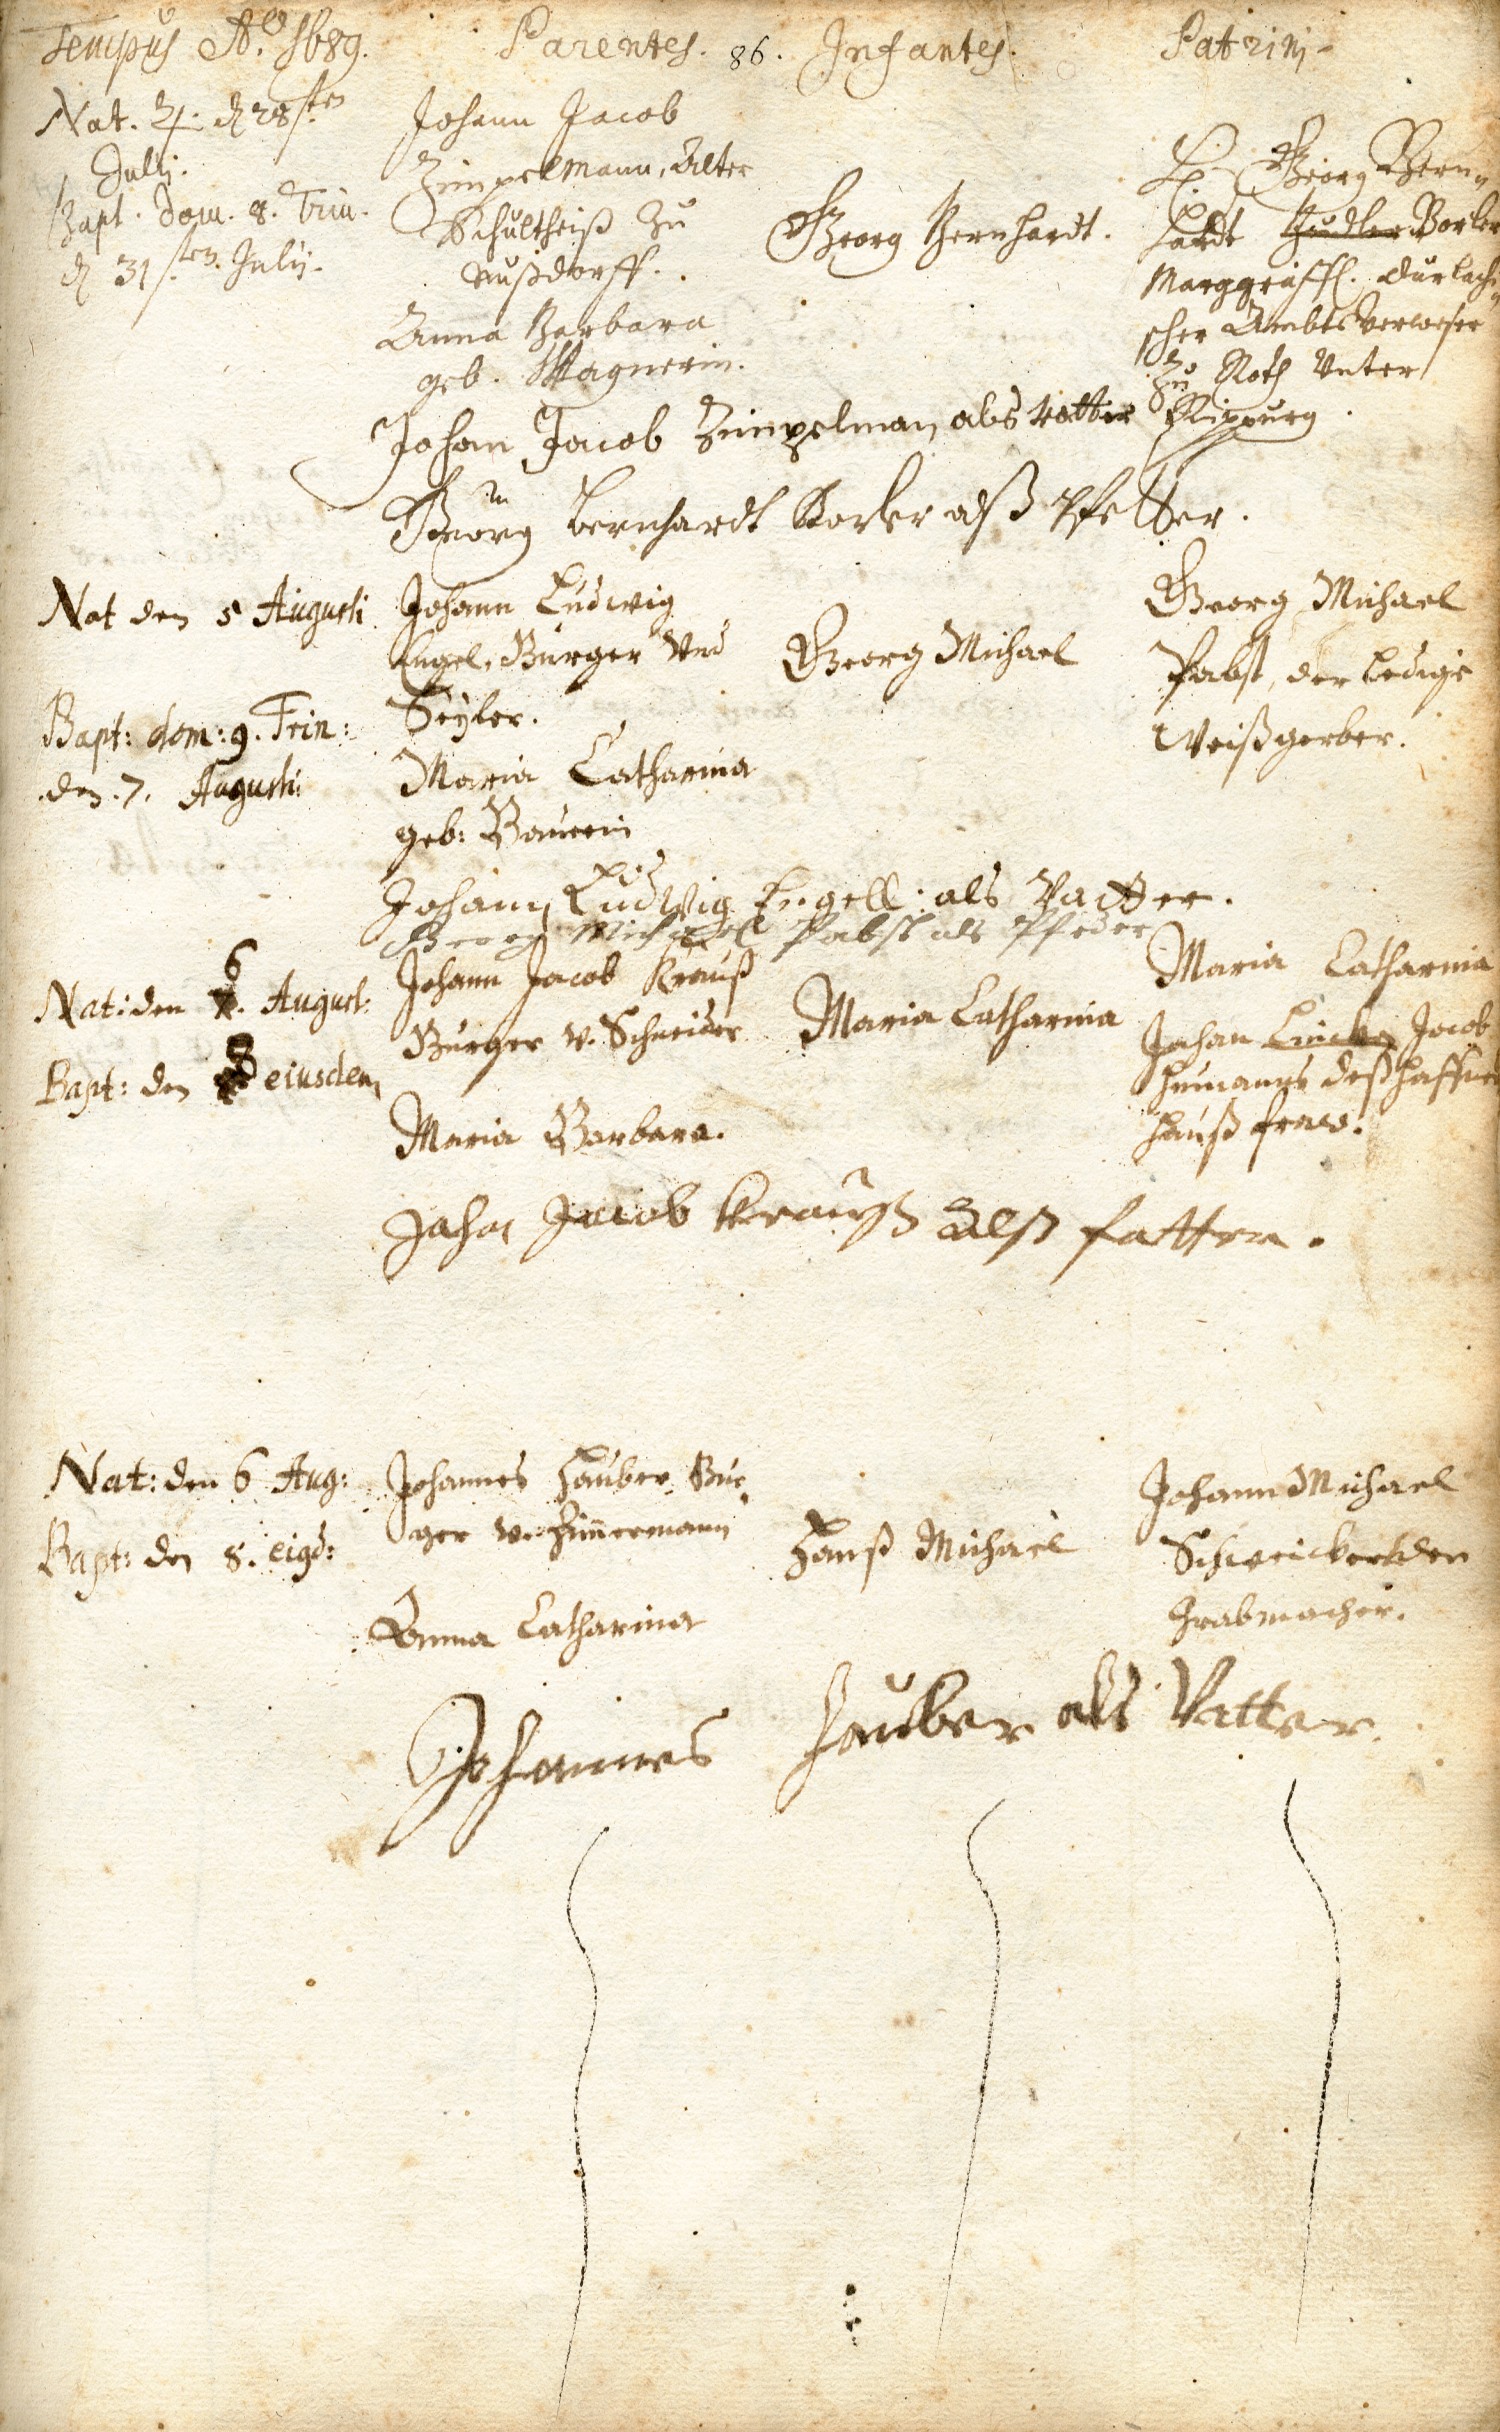 Tempus Ao. 1689. Parentes. 86. Infantes. Patrini
Nat. 4. d 28sten
Julij.
Bapt. Dom. 8. Trin.
d 31sten Julij.
Johann Jacob
Zimpelmann, Alter
Schultheiß zu
Nußdorff.
Anna Barbara
geb. Wagnerin.
Georg Bernhardt.
H. Georg Bern-
hardt Borker
Marggräffl. Durlach-
scher Ambtsverweser
zu Roth Unter
Rippurg.
Johan Jacob Zimpelman als Vatter
Georg Bernhardt Borker alß Pfetter.
Nat den 5 Augusti
Bapt: dom: 9. Trin:
den 7. Augusti:
Johann Ludwig
Engel, Burger Und
Seyler.
Maria Catharina
geb: Baurin
Georg Michael
Georg Michael
Pabst, der ledige
Weißgerber.
Johann Ludwig Engell als Vatter.
Georg Michael Pabst als Pfeder
Nat: den 6. August:
Bapt: den 8 eiusdem
Johann Jacob Krauß
Burger v. Schneider
Maria Barbara.
Maria Catharina
Maria Catharina
Johan Jacob
deß haffners
hauß fraw.
Johan Jacob Krauß Alß fatter.
Nat: den 6 Aug:
Bapt: den 8. eiusd:
Johannes Hauber Bur-
ger v. Zimmermann
Anna Catharina
Hanß Michael
Johann Michael
Schweickert der
Grabmacher.
Johannes Hauber als Vatter.